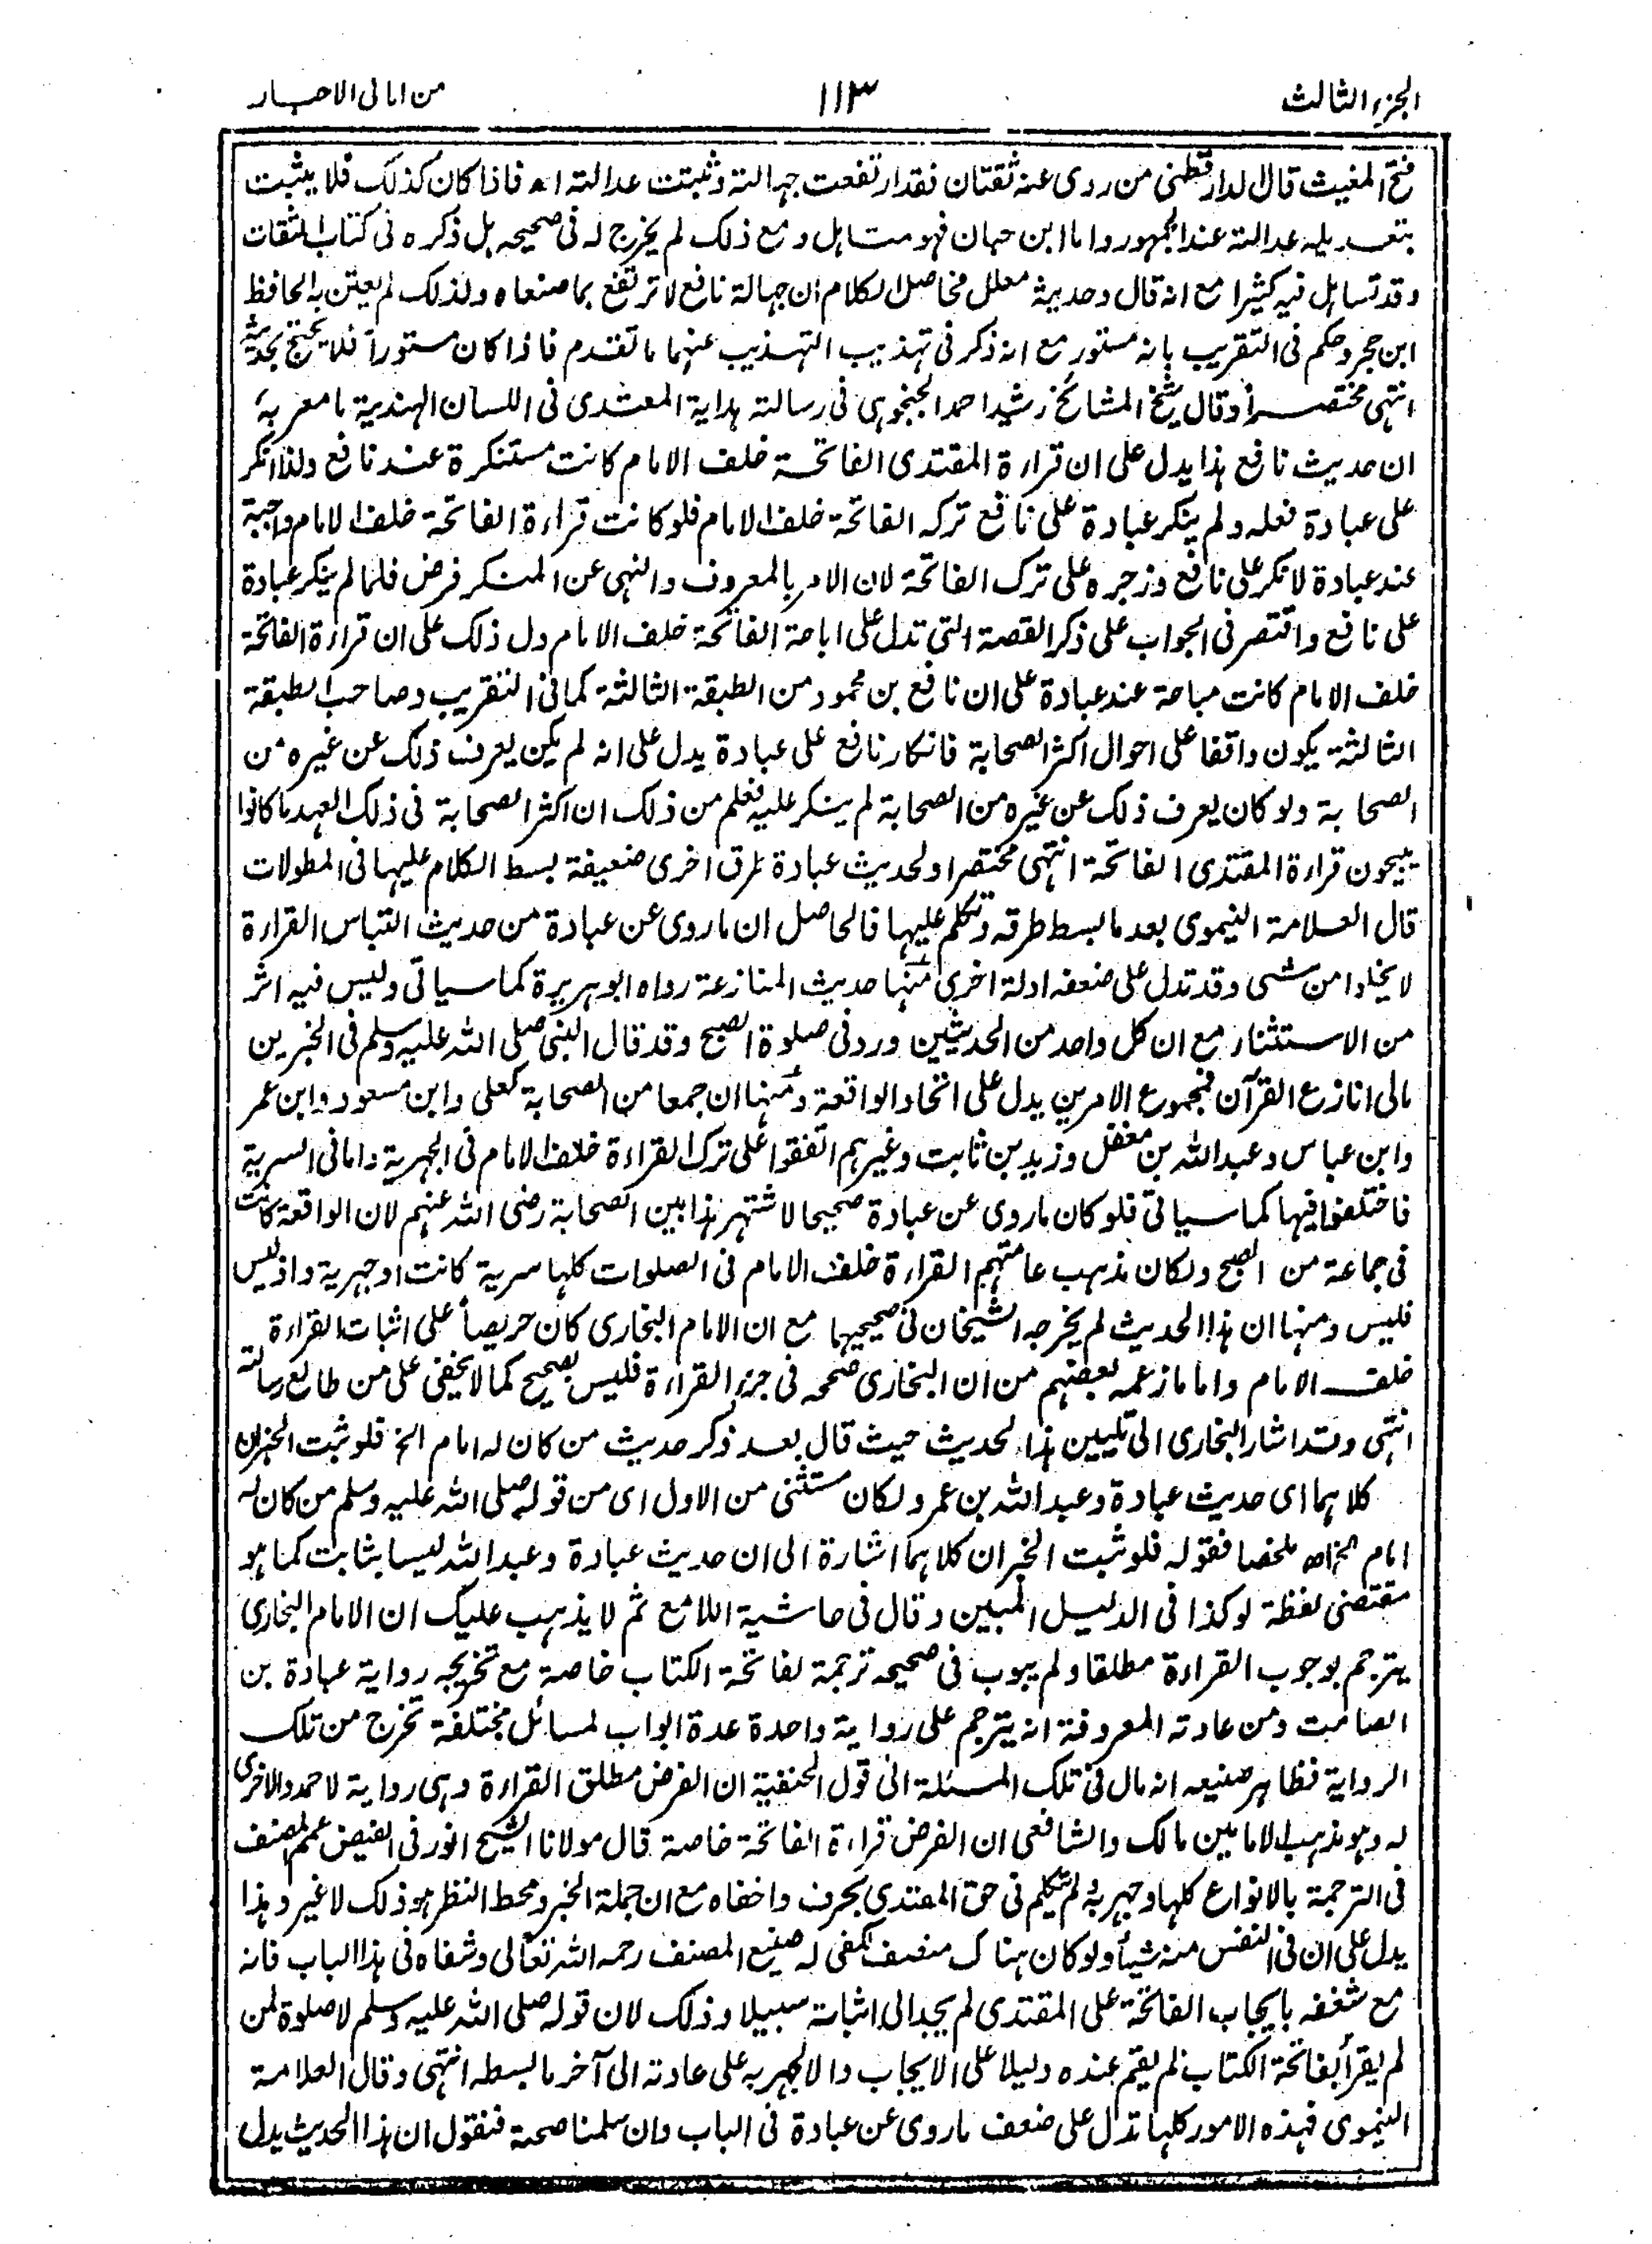 الجزء الثالث ١١٣ من امانی الاحبار
فتح المغيث قال الدارقطنی من روی عنه ثقتان فقد ارتفعت جهالته وثبتت عدالته اھ فاذا كان كذلك فلا يثبت
بتعديله عدالته عند الجمهور واما ابن حبان فهو متساهل ومع ذلك لم يخرج له فی صحيحه بل ذكره فی كتاب الثقات
وقد تساهل فيه كثيرا مع انه قال وحديثه معلل فحاصل الكلام ان جهالة نافع لا ترتفع بما صنعاه ولذلك لم يعتن به الحافظ
ابن حجر وحكم فی التقريب بانه مستور مع انه ذكر فی تهذيب التهذيب عنهما ما تقدم فاذا كان مستوراً فلا يحتج بحديثه
انتهى مختصراً وقال شيخ المشائخ رشيد احمد الجنجوهی فی رسالته هداية المعتدی فی اللسان الهندية ما معربه
ان حديث نافع هذا يدل على ان قراءة المقتدی الفاتحة خلف الامام كانت مستنكرة عند نافع ولذا انكر
على عبادة فعله ولم ينكر عبادة على نافع تركه الفاتحة خلف الامام فلو كانت قراءة الفاتحة خلف الامام واجبة
عند عبادة لانكر على نافع وزجره على ترك الفاتحة لان الامر بالمعروف والنهی عن المنكر فرض فلما لم ينكر عبادة
على نافع واقتصر فی الجواب على ذكر القصة التی تدل على اباحة الفاتحة خلف الامام دل ذلك على ان قراءة الفاتحة
خلف الامام كانت مباحة عند عبادة على ان نافع بن محمود من الطبقة الثالثة كما فی التقريب وصاحب الطبقة
الثالثة يكون واقفا على احوال اكثر الصحابة فانكار نافع على عبادة يدل على انه لم يكن يعرف ذلك عن غيره من
الصحابة ولو كان يعرف ذلك عن غيره من الصحابة لم ينكر عليه فعلم من ذلك ان اكثر الصحابة فی ذلك العهد ما كانوا
يبيحون قراءة المقتدی الفاتحة انتهى مختصرا ولحديث عبادة طرق اخری ضعيفة بسط الكلام عليها فی المطولات
قال العلامة النيموی بعد ما بسط طرقه وتكلم عليها فالحاصل ان ما روی عن عبادة من حديث التباس القراءة
لا يخلوا من شیء وقد تدل على ضعفه ادلة اخری منها حديث المنازعة رواه ابو هريرة كما سياتی وليس فيه اثر
من الاستثناء مع ان كل واحد من الحديثين ورد فی صلوة الصبح وقد قال النبی صلى الله عليه وسلم فی الخبرين
مالی انازع القرآن فمجموع الامرين يدل على اتحاد الواقعة ومنها ان جمعا من الصحابة كعلی وابن مسعود وابن عمر
وابن عباس وعبد الله بن مغفل وزيد بن ثابت وغيرهم اتفقوا على ترك القراءة خلف الامام فی الجهرية واما فی السرية
فاختلفوا فيها كما سياتی فلو كان ما روی عن عبادة صحيحا لاشتهر هذا بين الصحابة رضی الله عنهم لان الواقعة كانت
فی جماعة من الصبح ولكان مذهب عامتهم القراءة خلف الامام فی الصلوات كلها سرية كانت او جهرية واذ ليس
فليس ومنها ان هذا الحديث لم يخرجه الشيخان فی صحيحيهما مع ان الامام البخاری كان حريصاً على اثبات القراءة
خلف الامام واما ما زعمه بعضهم من ان البخاری صححه فی جزء القراءة فليس بصحيح كما لا يخفى على من طالع رسالته
انتهى وقد اشار البخاری الى تليين هذا الحديث حيث قال بعد ذكر حديث من كان له امام الخ فلو ثبت الخبران
كلاهما ای حديث عبادة وعبد الله بن عمر ولكان مستثنى من الاول ای من قوله صلى الله عليه وسلم من كان له
امام الخ اھ ملخصا فقوله فلو ثبت الخبران كلاهما اشارة الى ان حديث عبادة وعبد الله ليسا بثابت كما هو
مقتضى لفظة لو كذا فی الدليل المبين وقال فی حاشية اللامع ثم لا يذهب عليك ان الامام البخاری
يترجم بوجوب القراءة مطلقا ولم يبوب فی صحيحه ترجمة لفاتحة الكتاب خاصة مع تخريجه رواية عبادة بن
الصامت ومن عادته المعروفة انه يترجم على رواية واحدة عدة ابواب لمسائل مختلفة تخرج من تلك
الرواية فظاهر صنيعه انه مال فی تلك المسئلة الى قول الحنفية ان الفرض مطلق القراءة وهی رواية لاحمد والاخری
له وهو مذهب الامامين مالك والشافعی ان الفرض قراءة الفاتحة خاصة قال مولانا الشيخ انور فی الفيض عمم المصنف
فی الترجمة بالانواع كلها وجهر به ولم يتكلم فی حق المقتدی بحرف واخفاه مع ان جملة الخبر ومحط النظر هو ذلك لا غير وهذا
يدل على ان فی النفس منه شيأ ولو كان هناك منصف لكفى له صنيع المصنف رحمه الله تعالى وشفاه فی هذا الباب فانه
مع شغفه بايجاب الفاتحة على المقتدی لم يجد الى اثباته سبيلا وذلك لان قوله صلى الله عليه وسلم لا صلوة لمن
لم يقرأ بفاتحة الكتاب لم يقم عنده دليلا على الايجاب والا لجهر به على عادته الى آخر ما بسطه انتهى وقال العلامة
النيموی فهذه الامور كلها تدل على ضعف ما روی عن عبادة فی الباب وان سلمنا صحته فنقول ان هذا الحديث يدل